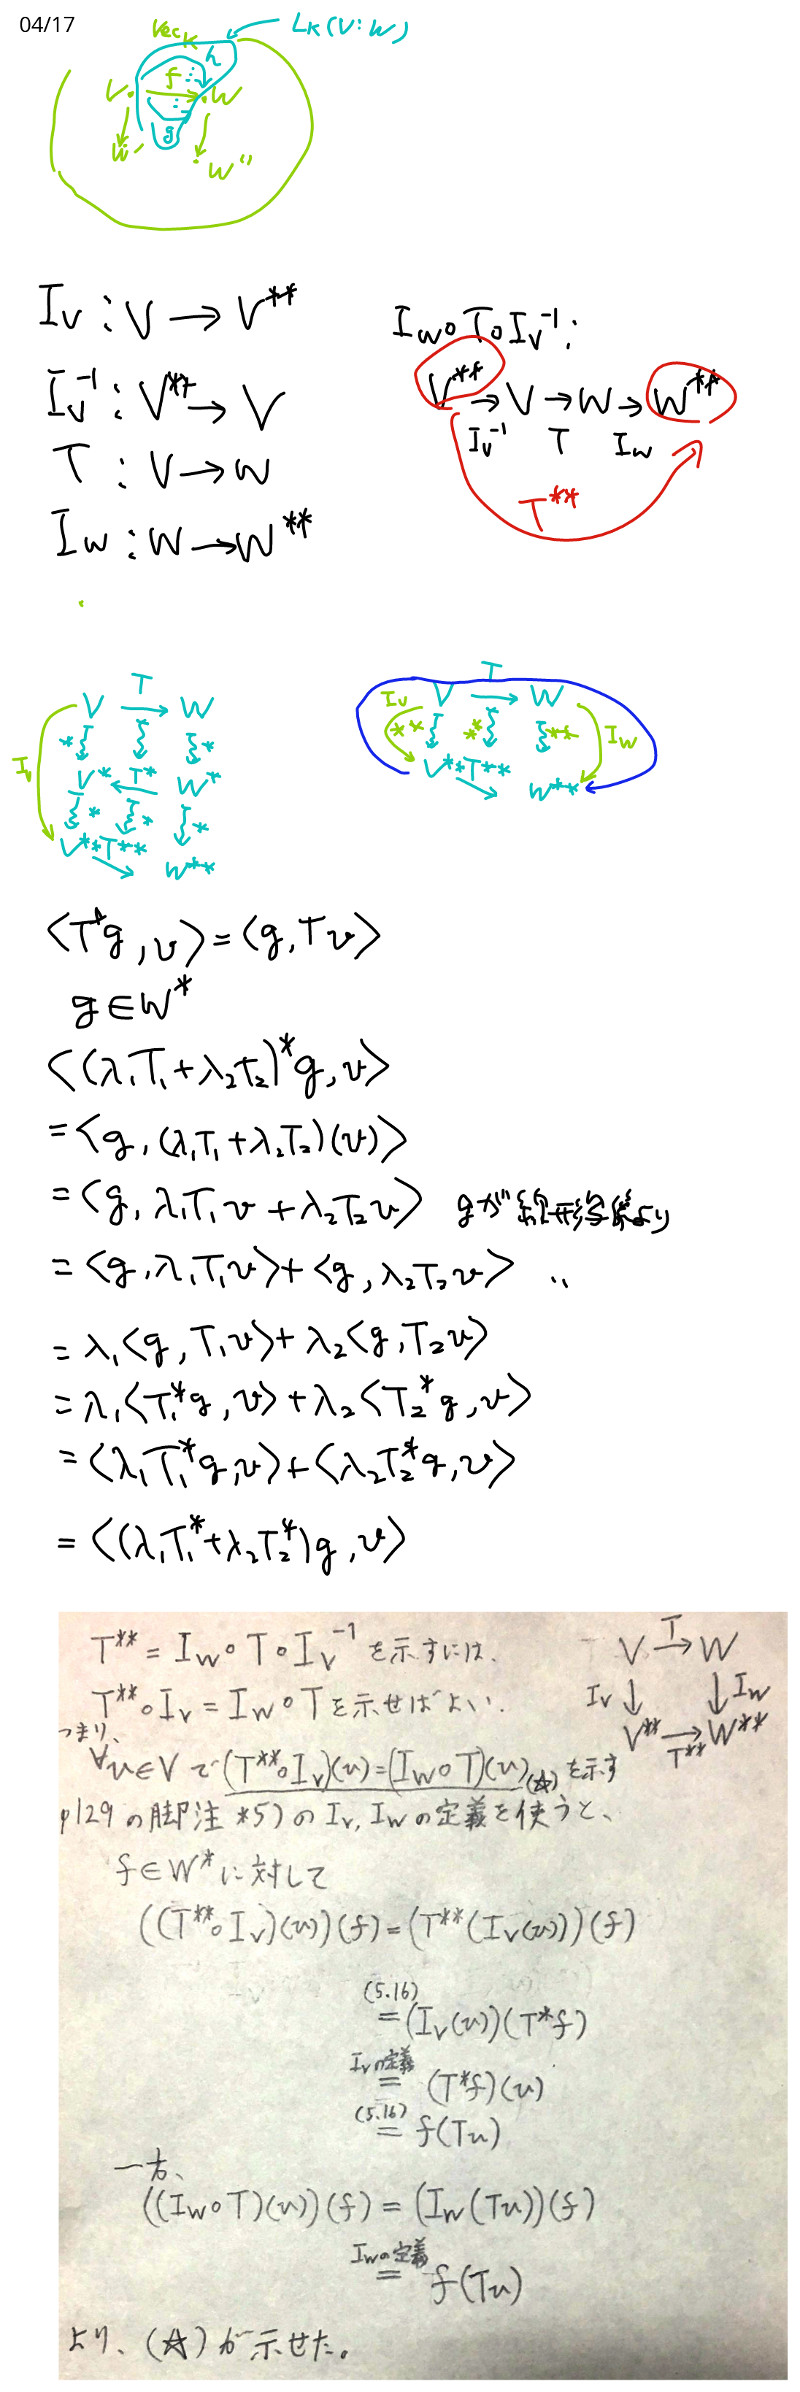 04/17
Vec_K
L_K(V:W)
h
f
V. → .W
g
W'
W''
I_V : V → V**
I_V^{-1} : V** → V
T : V → W
I_W : W → W**
I_W∘T∘I_V^{-1} :
V** → V → W → W**
I_V^{-1} T I_W
T**
T
V → W
* * *
I_V
V* T* W*
* * *
V** T** W**
T
I_V V → W
** ** ** I_W
V** T** W**
⟨T*g, v⟩ = ⟨g, Tv⟩
g ∈ W*
⟨(λ₁T₁+λ₂T₂)*g, v⟩
= ⟨g, (λ₁T₁+λ₂T₂)(v)⟩
= ⟨g, λ₁T₁v + λ₂T₂v⟩ gが線形写像より
= ⟨g, λ₁T₁v⟩ + ⟨g, λ₂T₂v⟩ 〃
= λ₁⟨g, T₁v⟩ + λ₂⟨g, T₂v⟩
= λ₁⟨T₁*g, v⟩ + λ₂⟨T₂*g, v⟩
= ⟨λ₁T₁*g, v⟩ + ⟨λ₂T₂*g, v⟩
= ⟨(λ₁T₁*+λ₂T₂*)g, v⟩
T** = I_W∘T∘I_V^{-1} を示すには、
T**∘I_V = I_W∘T を示せばよい.
つまり、
∀u∈V で (T**∘I_V)(u) = (I_W∘T)(u) (☆) を示す
p129 の脚注 *5) の I_V, I_W の定義を使うと、
f∈W* に対して
((T**∘I_V)(u))(f) = (T**(I_V(u)))(f)
(5.16)
= (I_V(u))(T*f)
I_Vの定義
= (T*f)(u)
(5.16)
= f(Tu)
一方、
((I_W∘T)(u))(f) = (I_W(Tu))(f)
I_Wの定義
= f(Tu)
より、(☆) が示せた。
V T→ W
I_V ↓ ↓ I_W
V** → W**
T**